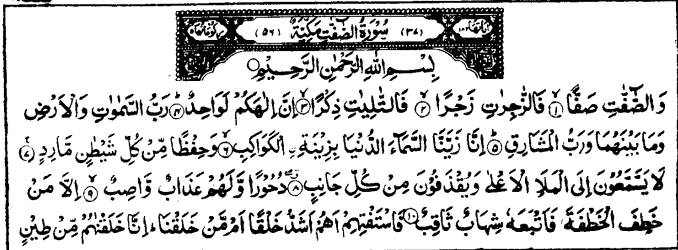 (۳۷) سُوْرَةُ الصّٰٓفّٰتِ مَكِّيَّةٌ (۵۶)
بِسْمِ اللّٰهِ الرَّحْمٰنِ الرَّحِيْمِ
وَالصّٰٓفّٰتِ صَفًّا ۙ۱ فَالزّٰجِرٰتِ زَجْرًا ۙ۲ فَالتّٰلِيٰتِ ذِكْرًا ۙ۳ اِنَّ اِلٰهَكُمْ لَوَاحِدٌ ؕ۴ رَبُّ السَّمٰوٰتِ وَالْاَرْضِ
وَمَا بَيْنَهُمَا وَرَبُّ الْمَشَارِقِ ؕ۵ اِنَّا زَيَّنَّا السَّمَآءَ الدُّنْيَا بِزِيْنَةِ ۨالْكَوَاكِبِ ۙ۶ وَحِفْظًا مِّنْ كُلِّ شَيْطٰنٍ مَّارِدٍ ۚ۷
لَا يَسَّمَّعُوْنَ اِلَى الْمَلَاِ الْاَعْلٰى وَيُقْذَفُوْنَ مِنْ كُلِّ جَانِبٍ ۖ۸ دُحُوْرًا وَّلَهُمْ عَذَابٌ وَّاصِبٌ ۙ۹ اِلَّا مَنْ
خَطِفَ الْخَطْفَةَ فَاَتْبَعَهٗ شِهَابٌ ثَاقِبٌ ۱۰ فَاسْتَفْتِهِمْ اَهُمْ اَشَدُّ خَلْقًا اَمْ مَّنْ خَلَقْنَا ؕ اِنَّا خَلَقْنٰهُمْ مِّنْ طِيْنٍ